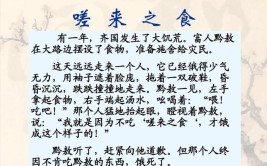 嗟来之食
有一年，齐国发生了大饥荒。富人黔敖
在大路边摆设了食物，准备施舍给灾民。
这天远远走来一个人，它已经饿得少气
无力，用袖子遮着脸庞，拖着一双破鞋，昏
昏沉沉，跌跌撞撞地走来。黔敖一见，左手
拿起食物，右手端起汤水，吆喝着：“喂！
吃吧！”那个人猛地抬起眼，瞪视着黔敖，
说：“我就是因为不吃‘嗟来之食’，才饿
成这个样子的！”
黔敖听了，赶紧向他道歉，但那个人终
因不肯吃黔敖的东西，饿死了。